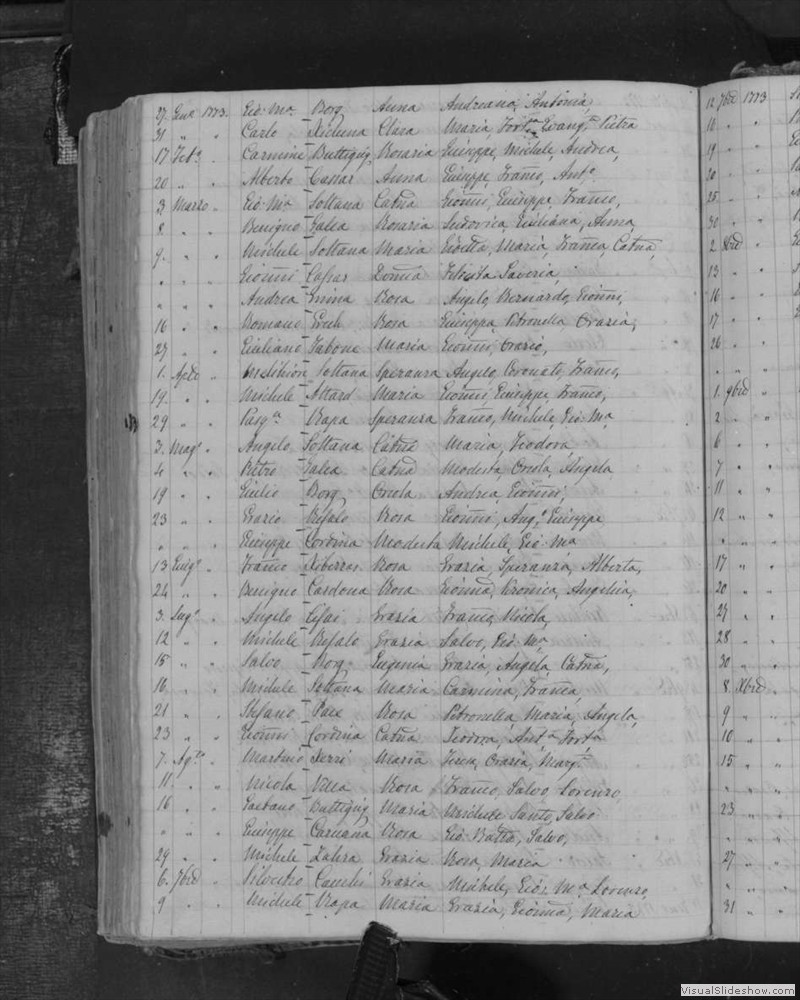 27. Gen.º 1773. Gio: Mª Borg Anna Andreana, Antonia,
31 " " Carlo Xicluna Clara Maria, Fortª Evangª Pietra
17 Febº " Carmine Buttigieg Rosaria Giuseppe, Michele, Andrea,
20 " " Alberto Cassar Anna Giuseppe, Franco, Antº
3 Marzo " Gio: Mª Soltana Catña Gioñni, Giuseppe, Franco,
8 " " Benigno Galea Rosaria Ludovica, Giuliana, Anna,
9. " " Michele Soltana Maria Maria, Franca, Catña,
" " " Gioñni Saveria,
" " " Andrea Rosa Angelo, Bernardo, Gioñni,
16 " " Romano Grech Rosa Giuseppa, Petronella, Grazia,
27 " " Giuliano Tabone Maria Gioñni, Grazio,
1. Aple " Melchior Soltana Speranza Angelo, Coronato, Franco,
19. " " Michele Attard Maria Gioñni, Giuseppe, Franco,
29 " " Pasqª Vrapa Speranza Franco, Michele, Gio: Mª
3. Magº " Angelo Soltana Catña Maria, Teodora,
4 " " Pietro Galea Catña Modesta, Orsola, Angela
19 " " Giulio Borg Orsola Andrea, Gioñni,
23 " " Grazio Refalo Rosa Gioñni, Angº, Giuseppe
" " " Giuseppe Cordina Modesta Michele, Gio: Mª
13 Giugº " Franco Xiberras Rosa Grazia, Speranza, Alberta,
24 " " Benigno Cardona Rosa Gioñna, Veronica, Angelica,
3. Lugº " Angelo Grazia Franco, Nicola,
12 " " Michele Refalo Grazia Salvo, Gio: Mª
15 " " Salvo Borg Eugenia Grazia, Angela, Catña,
16 " " Michele Soltana Maria Carmina, Franca,
21 " " Stefano Pace Rosa Petronella, Maria, Angela,
23 " " Gioñni Cordina Catña Teodora, Antª, Fortª
7. Agº " Martino Xerri Maria Teresa, Grazia, Margª
11. " " Nicola Vella Rosa Franco, Salvo, Lorenzo,
16 " " Gaetano Buttigieg Maria Michele, Santo, Salvo
" " " Giuseppe Caruana Rosa Gio: Batta, Salvo,
29 " " Michele Zahra Grazia Rosa, Maria
6. 7bre " Silvestro Camilleri Grazia Michele, Gio: Mª, Lorenzo,
9 " " Michele Vrapa Maria Grazia, Gioñna, Maria
12 7bre 1773
16 " "
19 " "
20 " "
25 " "
30 " "
2 8bre "
13 " "
16 " "
17 " "
26 " "
" " "
1. 9bre "
2 " "
6 " "
7 " "
11 " "
12 " "
" " "
17 " "
20 " "
27 " "
28 " "
30 " "
8. Xbre "
9 " "
10 " "
15 " "
" " "
23 " "
" " "
27 " "
" " "
31 " "
VisualSlideshow.com